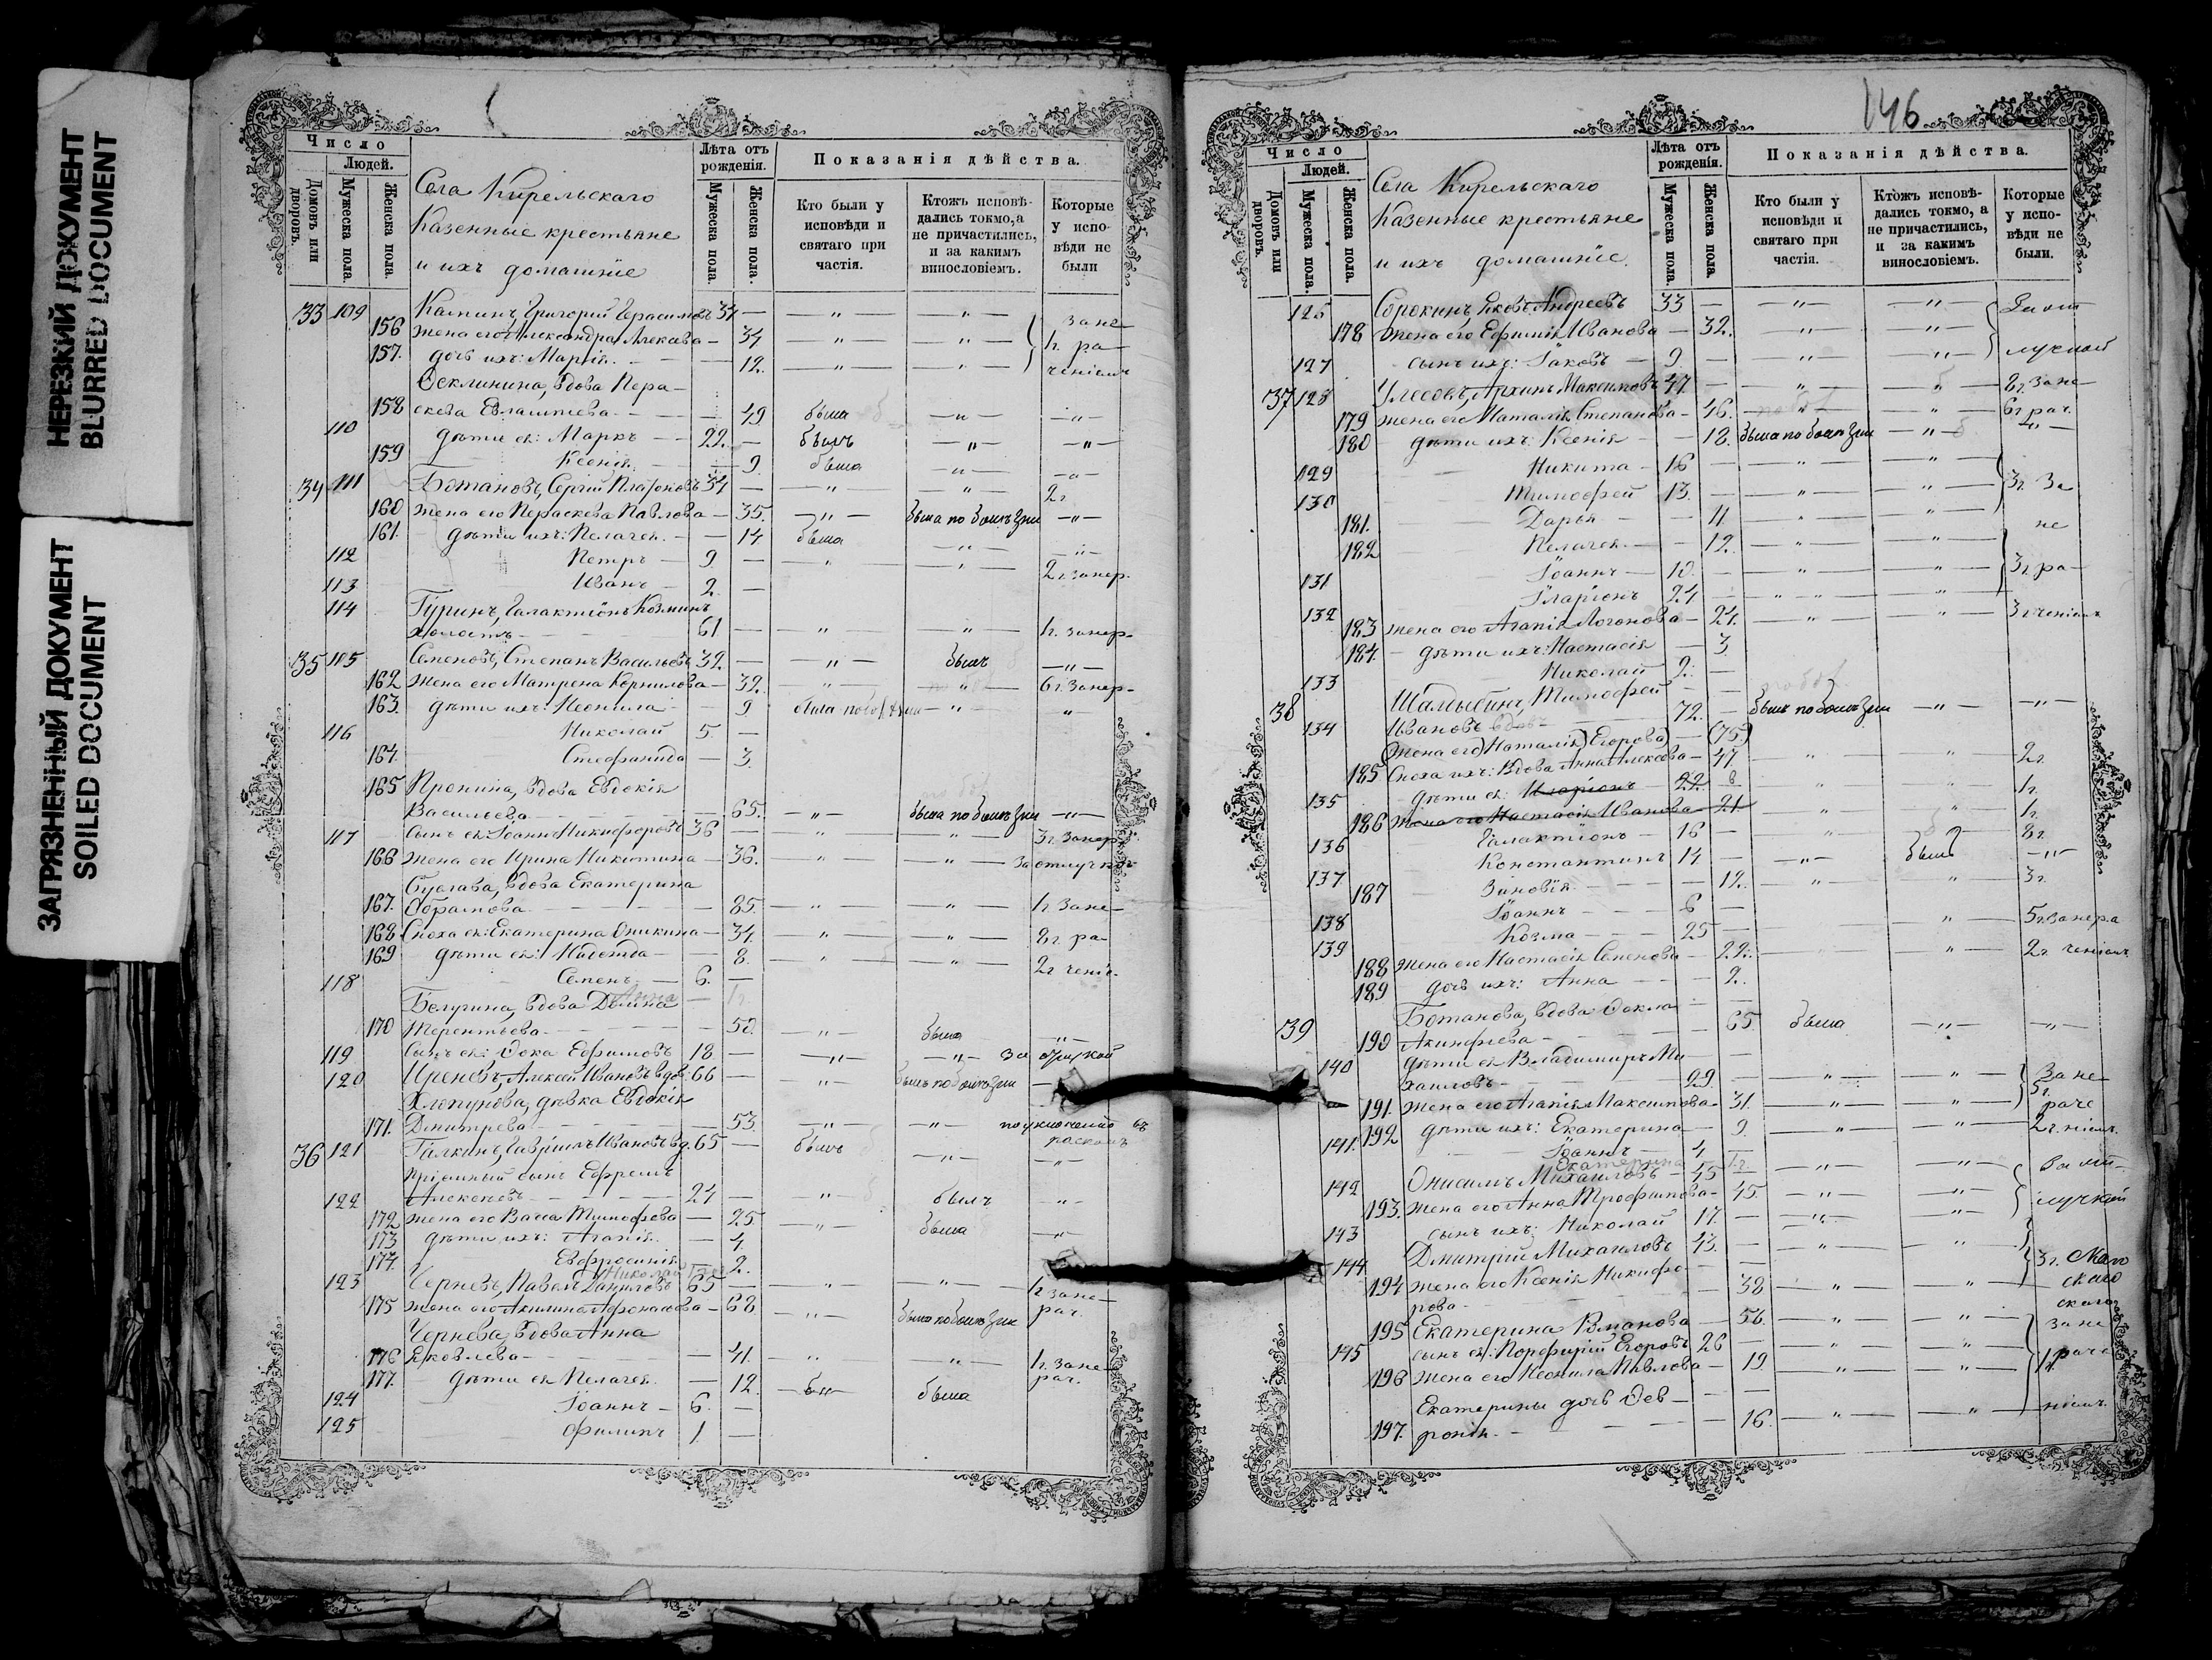 НЕРЕЗКИЙ ДОКУМЕНТ
BLURRED DOCUMENT
ЗАГРЯЗНЕННЫЙ ДОКУМЕНТ
SOILED DOCUMENT
Число
Людей.
Домовъ или дворовъ.
Мужеска пола.
Женска пола.
Села Кирельскаго
Казенные крестьяне
и ихъ домашніе
Лѣта отъ рожденія.
Мужеска пола.
Женска пола.
Показанія дѣйства.
Кто были у исповѣди и святаго причастія.
Ктожъ исповѣдались токмо, а не причастились, и за какимъ винословіемъ.
Которые у исповѣди не были
33 109 Григорій Герасимовъ 34 — — " — — " — зане-
156 жена его Александра Алексѣева — 34 — " — — " — 1г. ра-
157. дочь ихъ: Марѳа — 12. — " — — " — ченіемъ
вдова Пера-
158 скева Евлампіева — 49 была — " — — " —
110 дѣти ея: Маркъ — 22. — былъ — " — — " —
159 Ксенія — 9. была — " — — " —
34 111 Ботановъ, Сергій Платоновъ 34 — — " — — " — 2г
160 жена его Параскева Павлова — 35. — " — была по болѣзни — " —
161. дѣти ихъ: Пелагея — 14 была — " — — " —
112 Петръ — 9. — " — " — 2г. занер.
113 Иванъ — 2. —
114 Гуринъ, Галактіонъ Козминъ
холостъ — 61 — " — " — 1г. занер-
35 115 Семеновъ, Степанъ Васильевъ 32. — — " — былъ — " —
162 жена его Матрена Корнилова — 32. — " — — " — 6г. занер-
163. дѣти ихъ: Неонила — 9 была по болѣзни — " — "
116 Николай 5. —
164. Стефанида — 3.
165 Пронина, вдова Евдокія
Васильева — 65. — " — была по болѣзни — " —
117 сынъ ея Іоаннъ Никифоровъ 36 — — " — — " — 3г. занер.
166 жена его Ирина Никитина — 36. — " — — " — за отлучкою
вдова Екатерина
167. Абрамова — 85. — " — — " — 1г. зане-
168 Сноха ея: Екатерина Аникина — 34. — " — — " — 2г. ра-
169 дѣти ея: Надежда — 8. — " — — " — 2г ченіе.
118 Семенъ — 6. —
Белугина, вдова Домна
170 Терентьева — 50. — " — была — " —
119 сынъ ея: Ѳока Ефимовъ 18 — — " — — " — за отлучкой
120 Алексей Ивановъ вдов. 66 — — " — былъ по болѣзни —
Хлопунова, дѣвка Евдокія
171. Дмитрева — 53. — " — — " — по уклоненію въ расколъ
36 121 Галкинъ, Гавріилъ Ивановъ вд. 65 — былъ — " — — " —
пріемный сынъ Ефремъ
122 Алексѣевъ — 24 — " — былъ " —
172 жена его Васса Тимофеева — 25. — " — была — " —
173 дѣти ихъ: Агапія — 4.
174. Евфросинія — 2.
Николай
123 Черневъ, Павелъ Даниловъ 65 — — " — — " — 1г зане-
175 жена его Акилина Афонасьева — 68 — " — была по болѣзни рач.
Чернева, вдова Анна
176 Яковлева — 41. " — " — 1г. зане-
177. дѣти ея Пелагея — 12. была рач.
124 Іоаннъ — 6. —
125 Филипъ 1. —
146
Число
Людей.
Домовъ или дворовъ.
Мужеска пола.
Женска пола.
Села Кирельскаго
Казенные крестьяне
и ихъ домашніе.
Лѣта отъ рожденія.
Мужеска пола.
Женска пола.
Показанія дѣйства.
Кто были у исповѣди и святаго причастія.
Ктожъ исповѣдались токмо, а не причастились, и за какимъ винословіемъ.
Которые у исповѣди не были.
125 Сорокинъ, Яковъ Андреевъ 33 — — " — — " — За от
178 жена его Ефимія Иванова — 32. — " — — " —
127 сынъ ихъ: Іаковъ — 9 — — " — — " — лучкой
37 128 Архипъ Максимовъ 47. — — " — — " — 2г. зане-
179 жена его Наталія Степанова — 46. — " — — " — 6г рач.
180 дѣти ихъ: Ксенія — 18. была по болѣзни — " — — " —
129 Никита — 16 — — " — — " —
130 Тимофей 13. — — " — — " — 3г. За
181. Дарья — 11. — " — — " — не
182 Пелагея — 12. — " — — " —
131 Іоаннъ — 10. — — " — — " — 3г. ра-
Иларіонъ 24 — — " — — " —
132 183 жена его Агапія Логонова — 24. — " — — " — 3г ченіемъ
184. дѣти ихъ: Настасія — 3
133 Николай 2. —
38 Шалдыбинъ, Тимофей
134 Ивановъ вдовъ 72. — былъ по болѣзни — " — — " —
(Жена его) Наталія Егорова) — (75)
185 сноха ихъ: Вдова Анна Алексѣева — 47. " " 2г.
135 дѣти ея: Иларіонъ 22. " " 1г.
186 жена его Настасія Иванова — 21. " " 1г.
136 Галактіонъ — 16 — " 2г.
137 Константинъ 14 — — " — былъ — " —
187 Зиновія — 12. — " — " 3г.
138 Іоаннъ — 6 —
139 Козма — 25 — " — 5г. занера
188 жена его Настасія Семенова — 22. " — 2г. ченіемъ
189 дочь ихъ: Анна — 2.
39 Ботанова, вдова Ѳекла
190 Акинфіева — 65 была — " — — " —
140 дѣти ея Владимиръ Ми-
хаиловъ — 29. — — " — — " — Зане-
191. жена его Агапія Максимова — 31. — " — — " — 5г. раче
141. 192 дѣти ихъ: Екатерина — 9. — " — — " — 2г. ніемъ.
Іоаннъ — 4 —
Екатерина 1г.
142 Онисимъ Михаиловъ — 45 — — " — — " — За от-
193. жена его Анна Трофимова — 45. — " — — " — лучкой
143 сынъ ихъ: Николай 17. — — " — — " —
144 Дмитрій Михаиловъ 43. — — " — — " —
194 жена его Ксенія Никифо- 3г.
рова — 38 — " — — " —
195 Екатерина Романова — 56. — " — — " — зане
145 сынъ ея: Порфирій Егоровъ 26 — — " — — " — раче
196 жена его Неонила Павлова — 19 — " — — " — 1г.
Екатерины дочь Фев-
197. ронія. — 16. — " — — " — ніемъ.